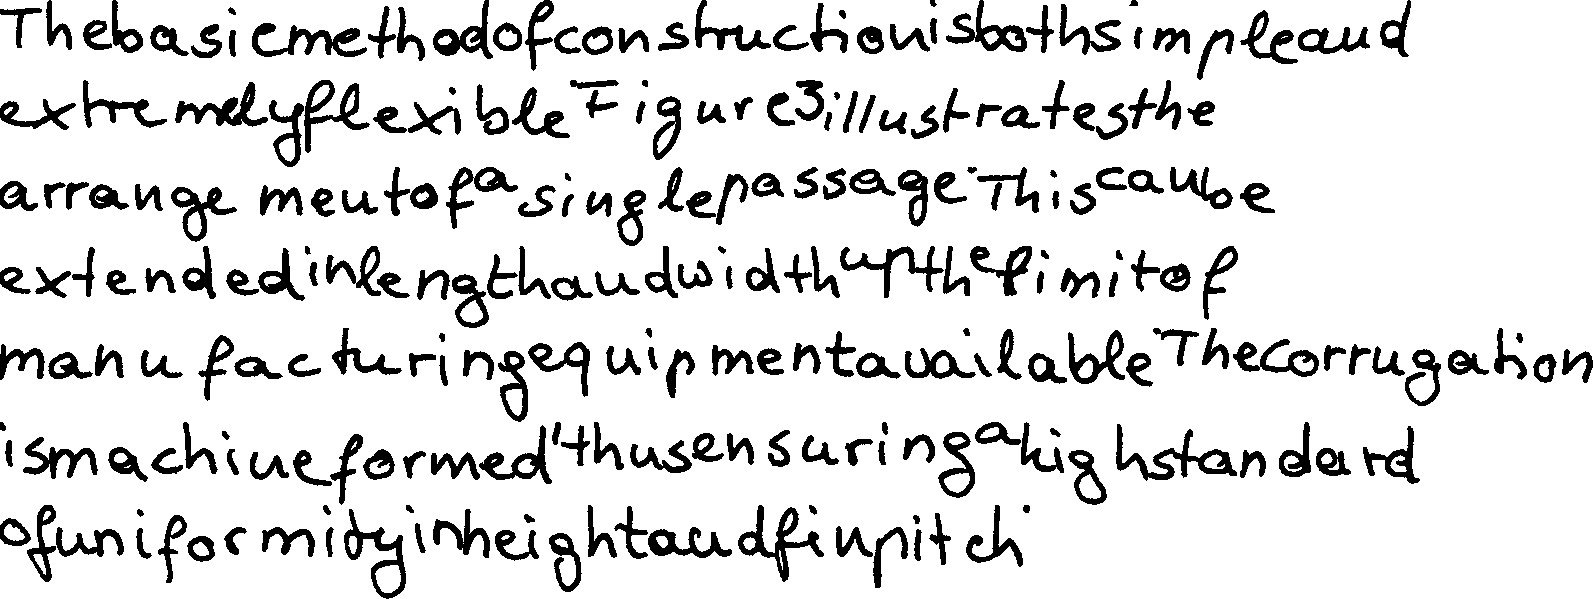 The basic method of construction is both simple and
extremely flexible Figure 3 illustrates the
arrangement of a single passage. This can be
extended in length and width up the limit of
manufacturing equipment available. The corrugation
is machine formed, thus ensuring a high standard
of uniformity in height and fin pitch.